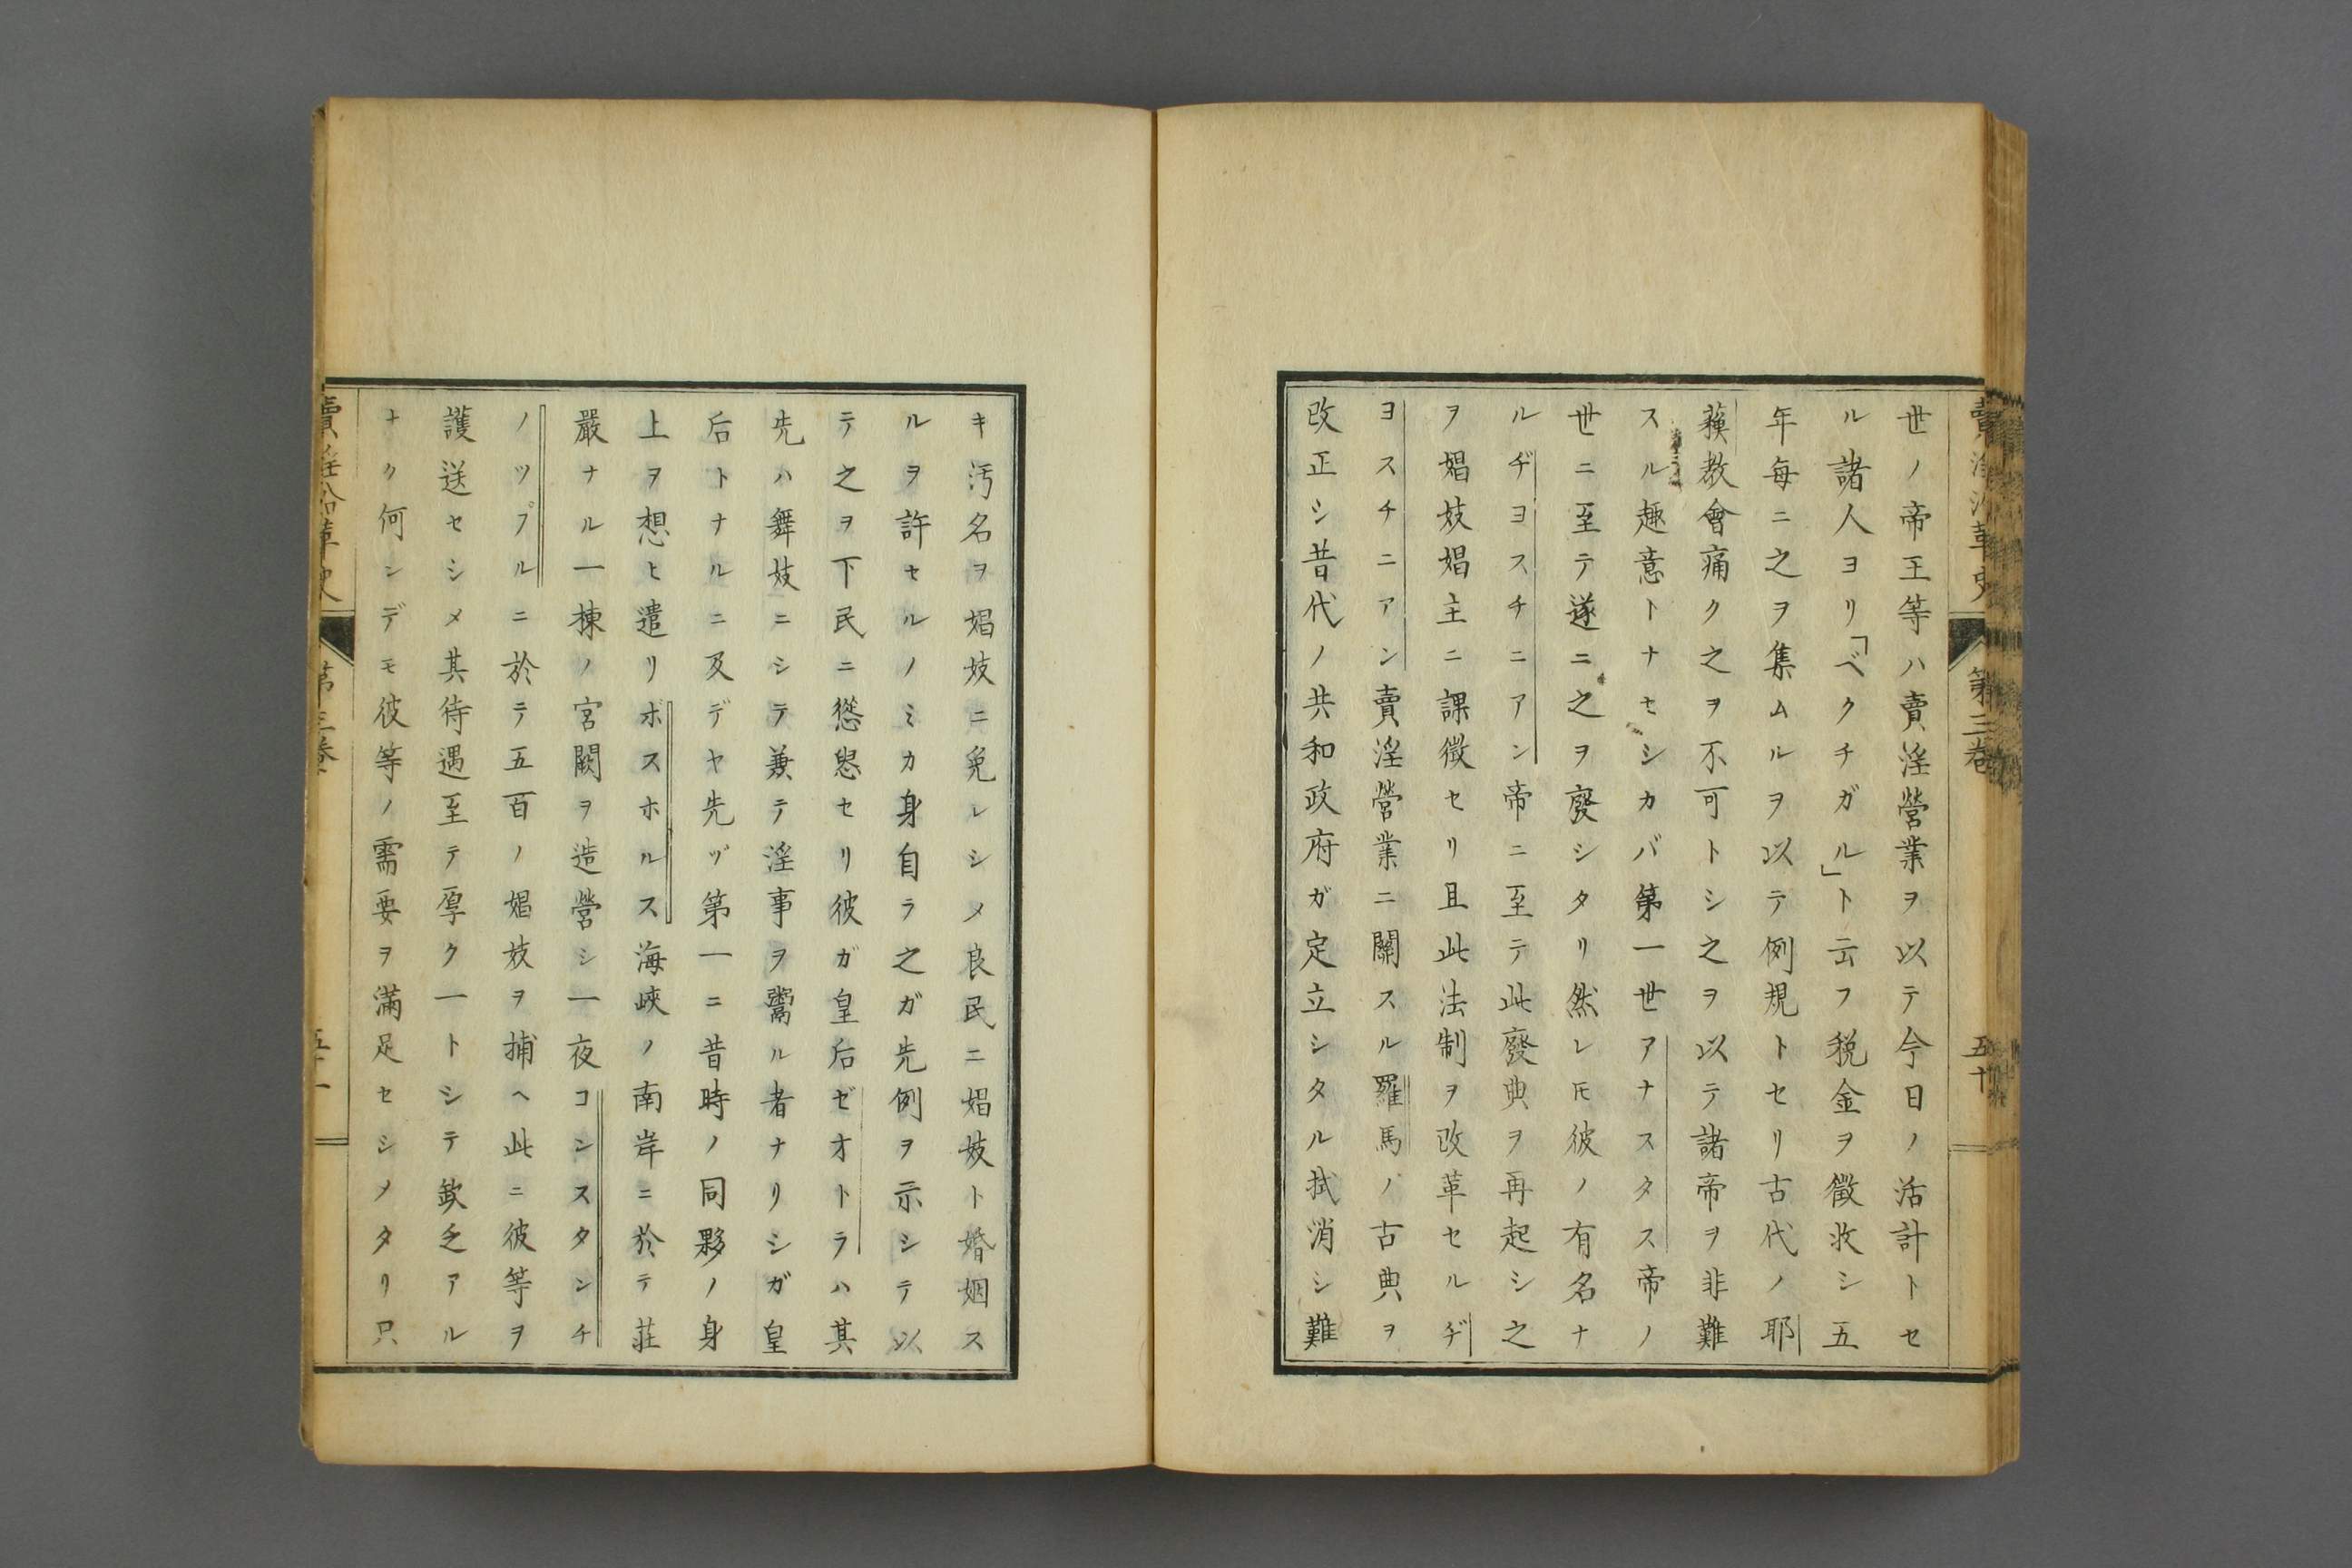 世ノ帝王等ハ賣淫營業ヲ以テ今日ノ活計トセ
ル諸人ヨリ「ベクチガル」ト云フ税金ヲ徴收シ五
年毎ニ之ヲ集ムルヲ以テ例規トセリ古代ノ耶
蘓教會痛ク之ヲ不可トシ之ヲ以テ諸帝ヲ非難
スル趣意トナセシカバ第一世アナスタス帝ノ
世ニ至テ遂ニ之ヲ廢シタリ然レ𪜈彼ノ有名ナ
ルヂヨスチニアン帝ニ至テ此廢典ヲ再起シ之
ヲ娼妓娼主ニ課徴セリ且此法制ヲ改革セルヂ
ヨスチニアン賣淫營業ニ關スル羅馬ノ古典ヲ
改正シ昔代ノ共和政府ガ定立シタル拭消シ難
賣淫沿革史 第三卷 五十
キ汚名ヲ娼妓ニ免レシメ良民ニ娼妓ト婚姻ス
ルヲ許セルノミカ身自ラ之ガ先例ヲ示シテ以
テ之ヲ下民ニ慫慂セリ彼ガ皇后ゼオトラハ其
先ハ舞妓ニシテ兼テ淫事ヲ鬻ル者ナリシガ皇
后トナルニ及デヤ先ヅ第一ニ昔時ノ同夥ノ身
上ヲ想ヒ遣リボスホルス海峽ノ南岸ニ於テ莊
嚴ナル一棟ノ宮闕ヲ造營シ一夜コンスタンチ
ノツプルニ於テ五百ノ娼妓ヲ捕ヘ此ニ彼等ヲ
護送セシメ其待遇至テ厚ク一トシテ欽乏アル
ナク何ンデモ彼等ノ需要ヲ滿足セシメタリ只
賣淫沿革史 第三卷 五十一